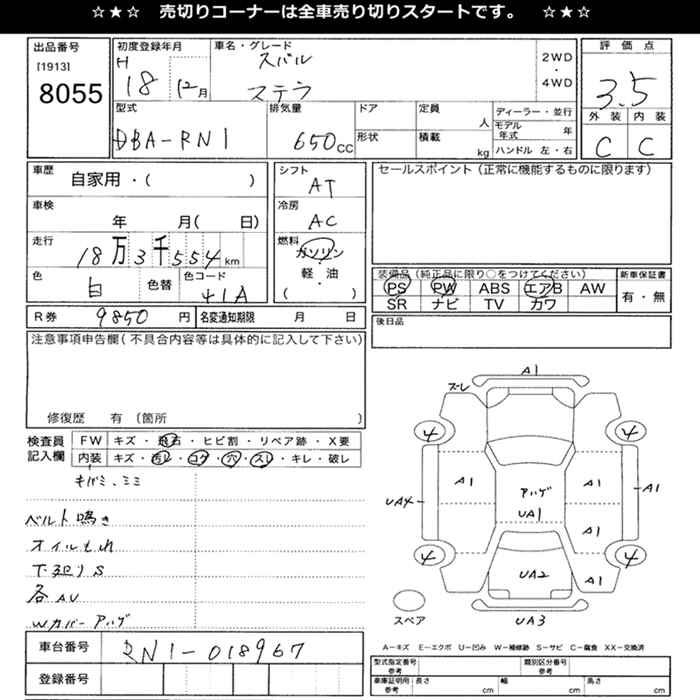 ☆★☆ 売切りコーナーは全車売り切りスタートです。 ☆★☆
出品番号
[1913]
8055
初度登録年月
H
18 12月
車名・グレード
スバル
ステラ
2WD
・
4WD
評価点
3.5
外装 内装
C C
型式
DBA-RN1
排気量
650cc
ドア
形状
定員
人
積載
kg
ディーラー・並行
モデル年式 年
ハンドル 左・右
車歴
自家用・( )
車検
年 月( 日)
走行
18万3千554km
色
白
色替
色コード
41A
シフト
AT
冷房
AC
燃料
ガソリン
軽・油
( )
セールスポイント(正常に機能するものに限ります)
装備品(純正品に限り○をつけてください)
PS PW ABS エアB AW
SR ナビ TV カワ
新車保証書
有・無
R券 9850円
名変通知期限 月 日
後日品
注意事項申告欄(不具合内容等は具体的に記入して下さい)
修復歴 有 (箇所 )
検査員
記入欄
FW キズ・飛石・ヒビ割・リペア跡・X要
内装 キズ・汚レ・コゲ・穴・スレ・キレ・破レ
キバミ、ミミ
ベルト鳴き
オイルもれ
下廻りS
各AU
Wカバーアハゲ
ズレ
A1
4
4
A1
A1
UA4
アハゲ
UA1
A1
A1
4
4
UA2
A1
スペア
UA3
車台番号 RN1-018967
登録番号
A-キズ E-エクボ U-凹み W-補修跡 S-サビ C-腐食 XX-交換済
型式指定番号
参考
類別区分番号
参考
車庫証明用
参考
長さ cm 幅 cm 高さ cm